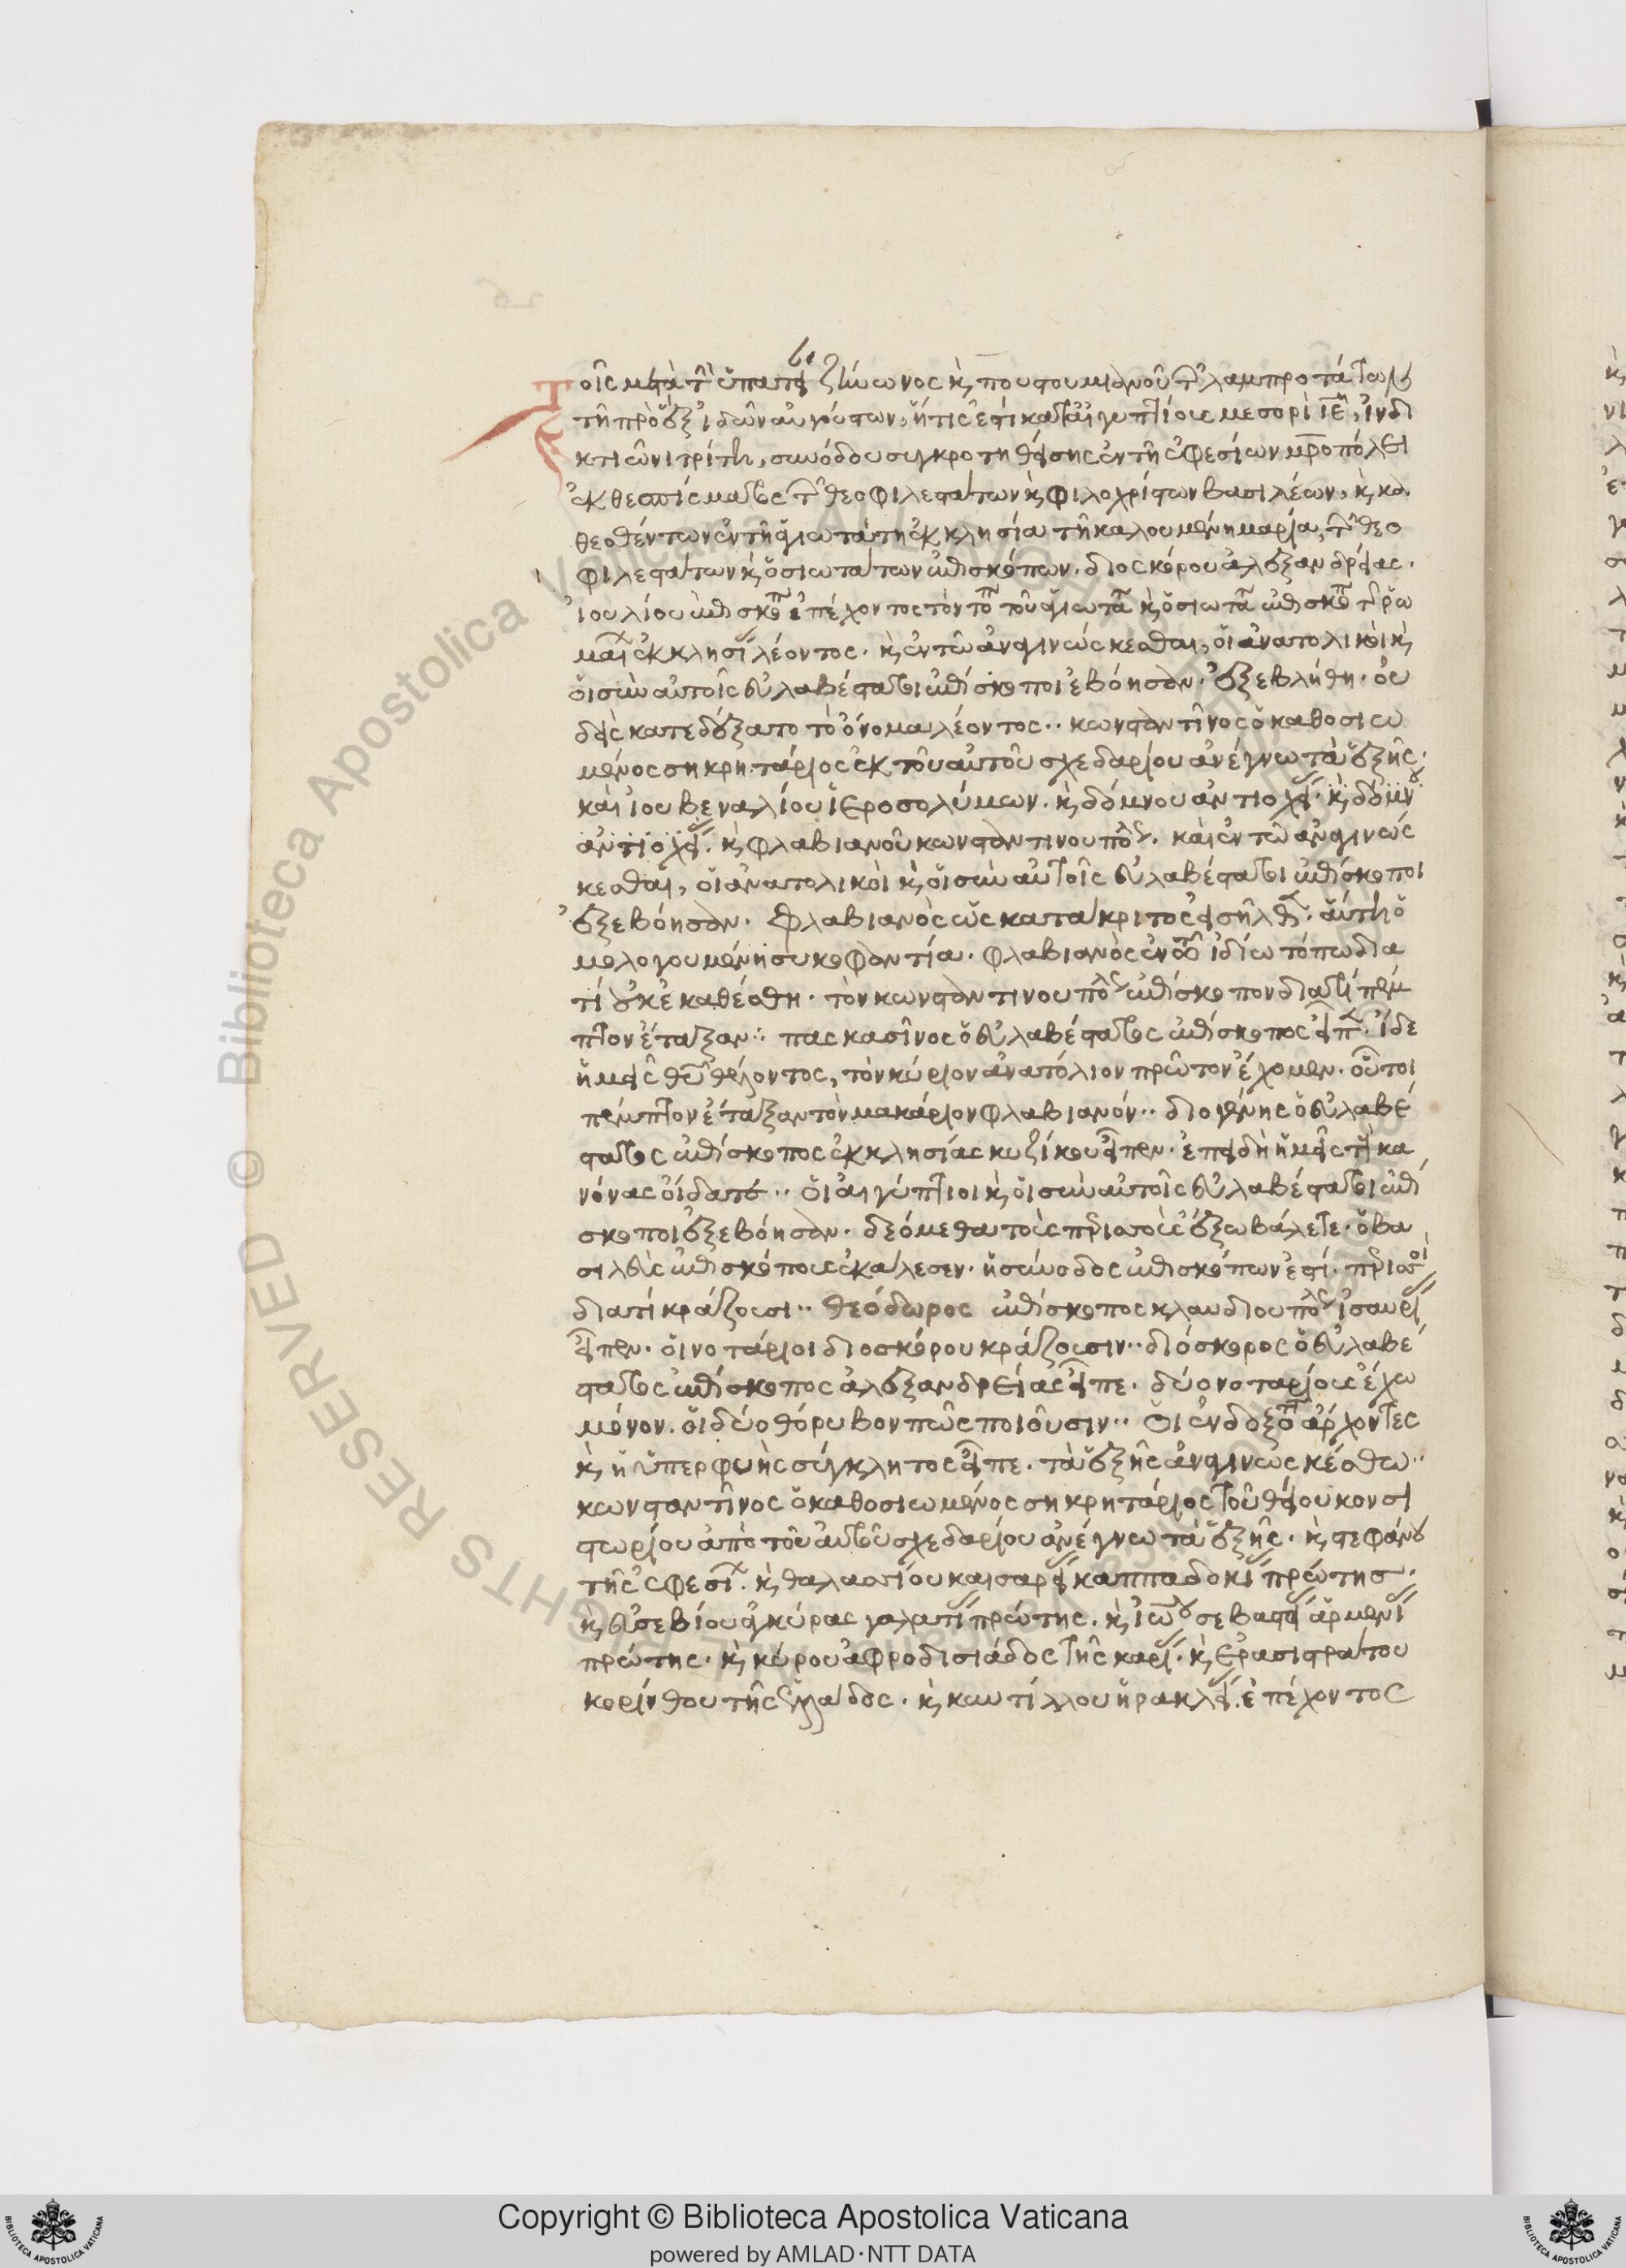 Τοῖς μετὰ τὴν ὑπατείαν ζήνωνος κ̀ ποστουμιανοῦ τῶν λαμπροτάτων
τῆ πρὸ ἓξ ἰδῶν αὐγούστων, ἥτις ἐστὶ κατ' αἰγυπτίους μεσορὶ ιε, ἰνδι
κτιῶνι τρίτη, συνόδου συγκροτηθείσης ἐν τῆ ἐφεσίων μροπόλει
ἐκ θεσπίσματος τῶν θεοφιλεστάτων κ̀ φιλοχρίστων βασιλέων, κ̀ κα
θεσθέντων ἐν τῆ ἁγιωτάτη ἐκκλησία τῆ καλουμένη μαρία, τῶν θεο
φιλεστάτων κ̀ ὁσιωτάτων ἐπισκόπων. διοσκόρου ἀλεξανδρείας.
ἰουλίου ἐπισκόπου ἐπέχοντος τὸν τόπον τοῦ ἁγιωτάτου κ̀ ὁσιωτάτου ἐπισκόπου τῆς ῥω
μαίων ἐκκλησίας λέοντος. κ̀ ἐν τῶ ἀναγινώσκεσθαι, οἱ ἀνατολικοὶ κ̀
οἱ σὺν αὐτοῖς εὐλαβέστατοι ἐπίσκοποι ἐβόησαν. ἐξεβλήθη. οὐ
δεὶς κατεδέξατο τὸ ὄνομα λέοντος.. κωνσταντῖνος ὁ καθοσιω
μένος σηκρητάριος ἐκ τοῦ αὐτοῦ σχεδαρίου ἀνέγνω τὰ ἑξῆς.
καὶ ἰουβεναλίου ἱεροσολύμων. κ̀ δόμνου ἀντιοχείας. κ̀ δόμνου
ἀντιοχείας. κ̀ φλαβιανοῦ κωνσταντινουπόλεως. καὶ ἐν τῶ ἀναγινώς
κεσθαι, οἱ ἀνατολικοὶ κ̀ οἱ σὺν αὐτοῖς εὐλαβέστατοι ἐπίσκοποι
ἐξεβόησαν. Φλαβιανὸς ὡς κατάκριτος εἰσῆλθεν. αὕτη ὁ
μολογουμένη συκοφαντία. φλαβιανὸς ἐν τῶ ἰδίω τόπω δια
τί οὐκ ἐκαθέσθη. τὸν κωνσταντινουπόλεως ἐπίσκοπον διατί πέμ
πτον ἔταξαν: πασκασῖνος ὁ εὐλαβέστατος ἐπίσκοπος εἶπεν. ἴδε
ἡμεῖς θεοῦ θέλοντος, τὸν κύριον ἀνατόλιον πρῶτον ἔχομεν. οὗτοι
πέμπτον ἔταξαν τὸν μακάριον φλαβιανόν.. διογένης ὁ εὐλαβέ
στατος ἐπίσκοπος ἐκκλησίας κυζίκου εἶπεν. ἐπειδὴ ἡμεῖς τοὺς κα
νόνας οἴδατε.. οἱ αἰγύπτιοι κ̀ οἱ σὺν αὐτοῖς εὐλαβέστατοι ἐπί
σκοποι ἐξεβόησαν. δεόμεθα τοὺς περισσοὺς ἔξω βάλετε. ὁ βα
σιλεὺς ἐπισκόπους ἐκάλεσεν. ἡ σύνοδος ἐπισκόπων ἐστί. περισσοὶ
διατί κράζουσι.. θεόδωρος ἐπίσκοπος κλαυδιουπόλεως ἰσαυρίας
εἶπεν. οἱ νοτάριοι διοσκόρου κράζουσιν.. διόσκορος ὁ εὐλαβέ
στατος ἐπίσκοπος ἀλεξανδρείας εἶπε. δύο νοταρίους ἔχω
μόνον. οἱ δύο θόρυβον πῶς ποιοῦσιν.. Οἱ ἐνδοξότατοι ἄρχοντες
κ̀ ἡ ὑπερφυὴς σύγκλητος εἶπε. τὰ ἑξῆς ἀναγινωσκέσθω..
κωνσταντῖνος ὁ καθοσιωμένος σηκρητάριος τοῦ θείου κονσι
στωρίου ἀπὸ τοῦ αὐτοῦ σχεδαρίου ἀνέγνω τὰ ἑξῆς. κ̀ στεφάνου
τῆς ἐφεσίων. κ̀ θαλασσίου καισαρείας καππαδοκίας πρώτης.
κ̀ εὐσεβίου ἀγκύρας γαλατίας πρώτης. κ̀ ἰωάννου σεβαστείας ἀρμενίας
πρώτης. κ̀ κύρου ἀφροδισιάδος τῆς καρίας. κ̀ ἐρασιστράτου
κορίνθου τῆς ἑλλάδος. κ̀ κυντίλλου ἡρακλείας. ἐπέχοντος
Copyright © Biblioteca Apostolica Vaticana
powered by AMLAD·NTT DATA